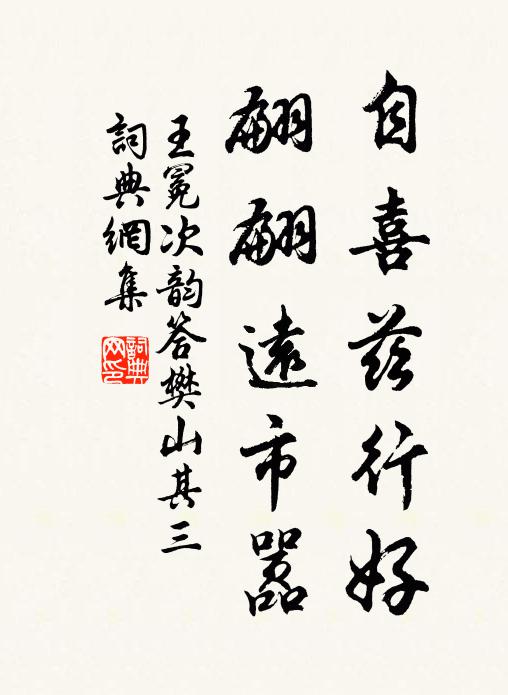 自喜茲行好
翩翩遠市囂
王冕次韵答樊山其三
詞典網集
詞典網印